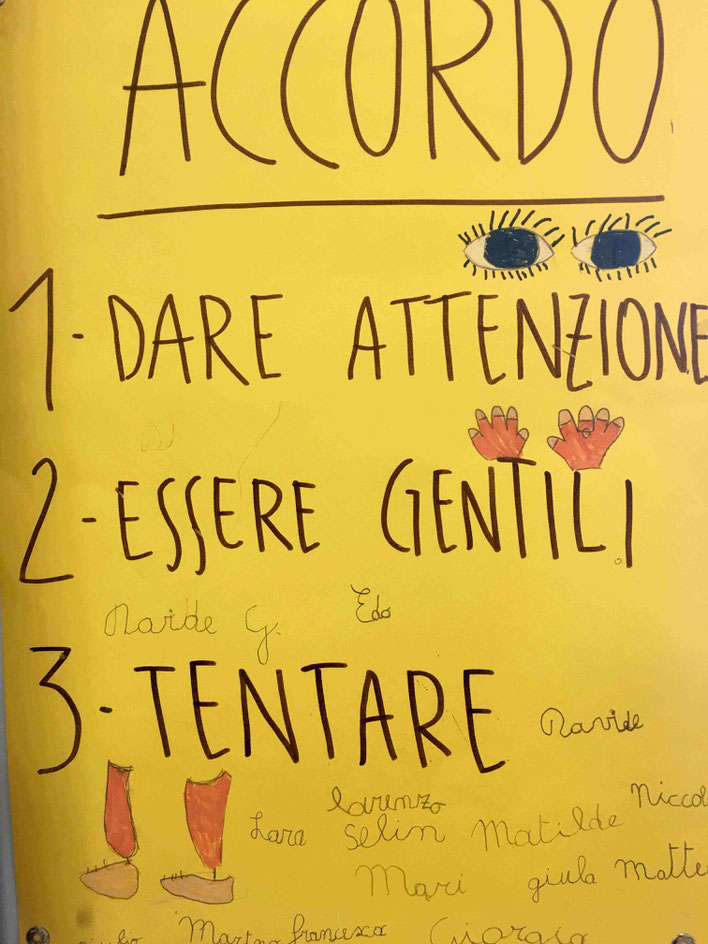 ACCORDO
1-DARE ATTENZIONE
2-ESSERE GENTILI
Edo
3-TENTARE
Davide
Lorenzo
Niccol
Lara Selin Matilde
Mari giula Matte
Martina francesca Giorgia